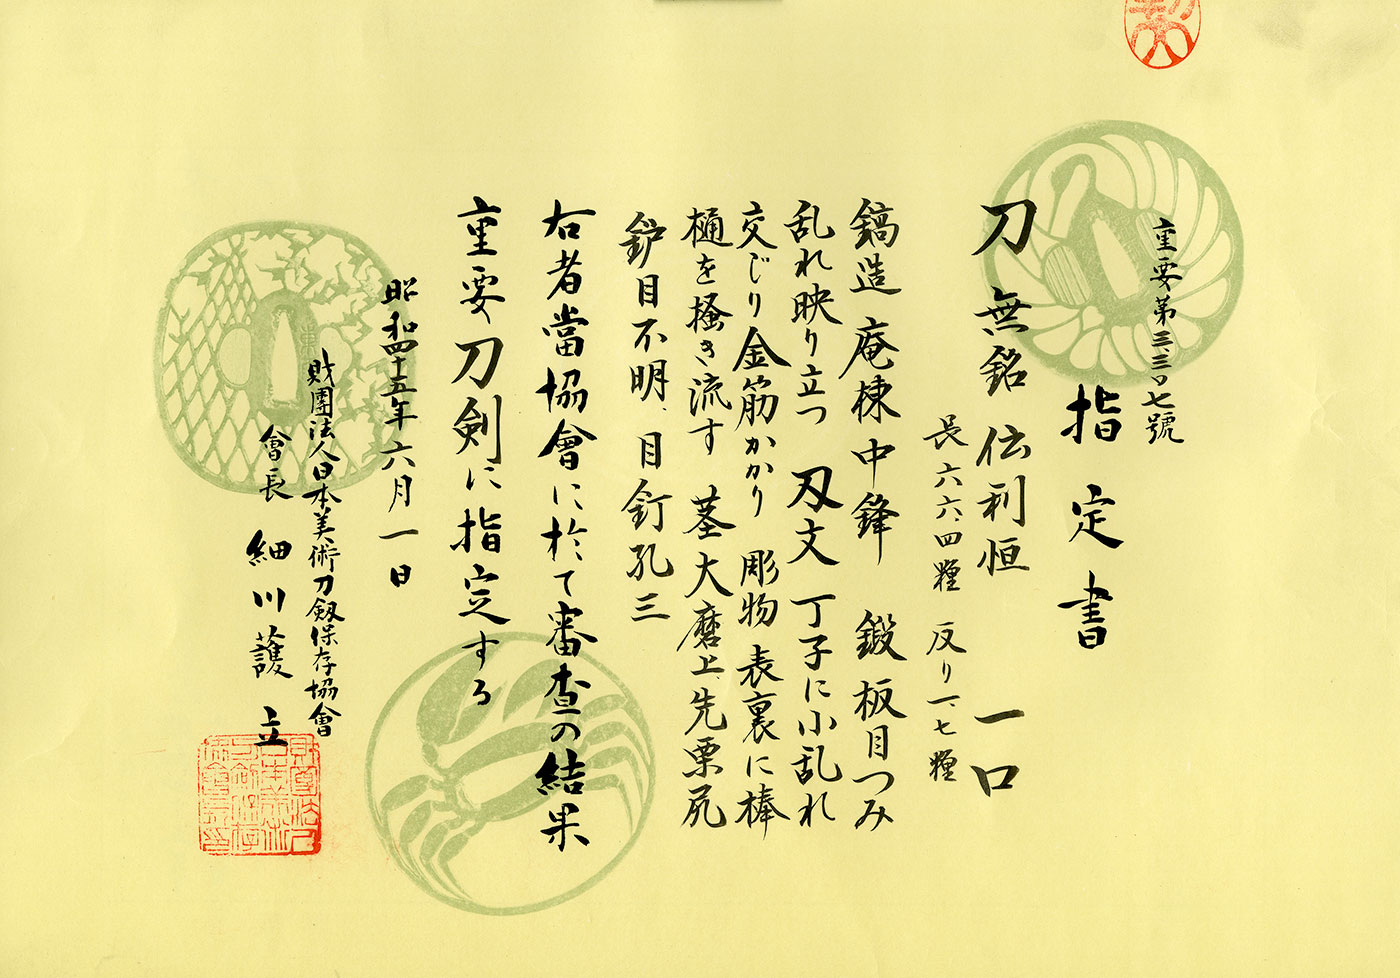 重要第三、三〇七號
指定書
刀 無銘 伝利恒 一口
長六六、四糎 反り一、七糎
鎬造 庵棟 中鋒 鍛 板目つみ
乱れ映り立つ 刄文 丁子に小乱れ
交じり金筋かかり 彫物 表裏に棒
樋を掻き流す 茎 大磨上、先栗尻
鈩目不明、目釘孔三
右者當協會に於て審査の結果
重要刀剣に指定する
昭和四十五年六月一日
財團法人日本美術刀剱保存協會
會長 細川護立